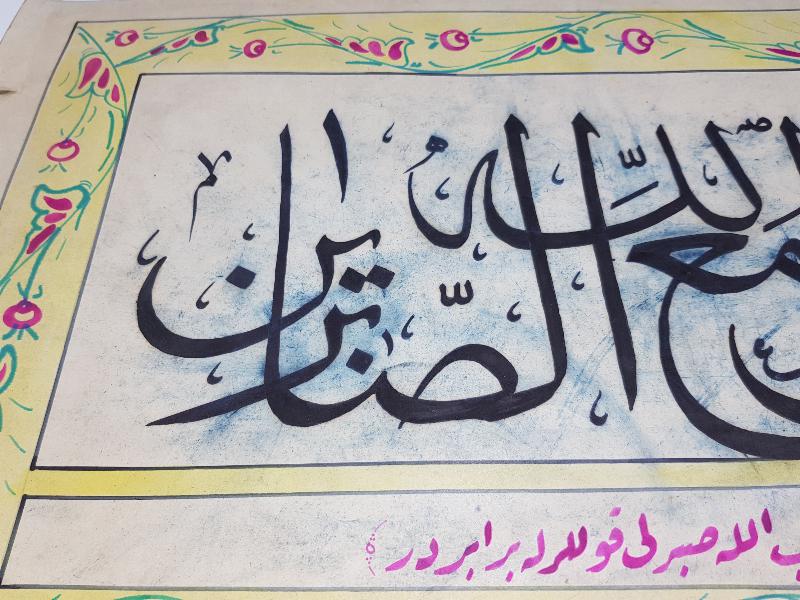 مع الله الصّابرين
الله صبرلى قوللرله برابردر